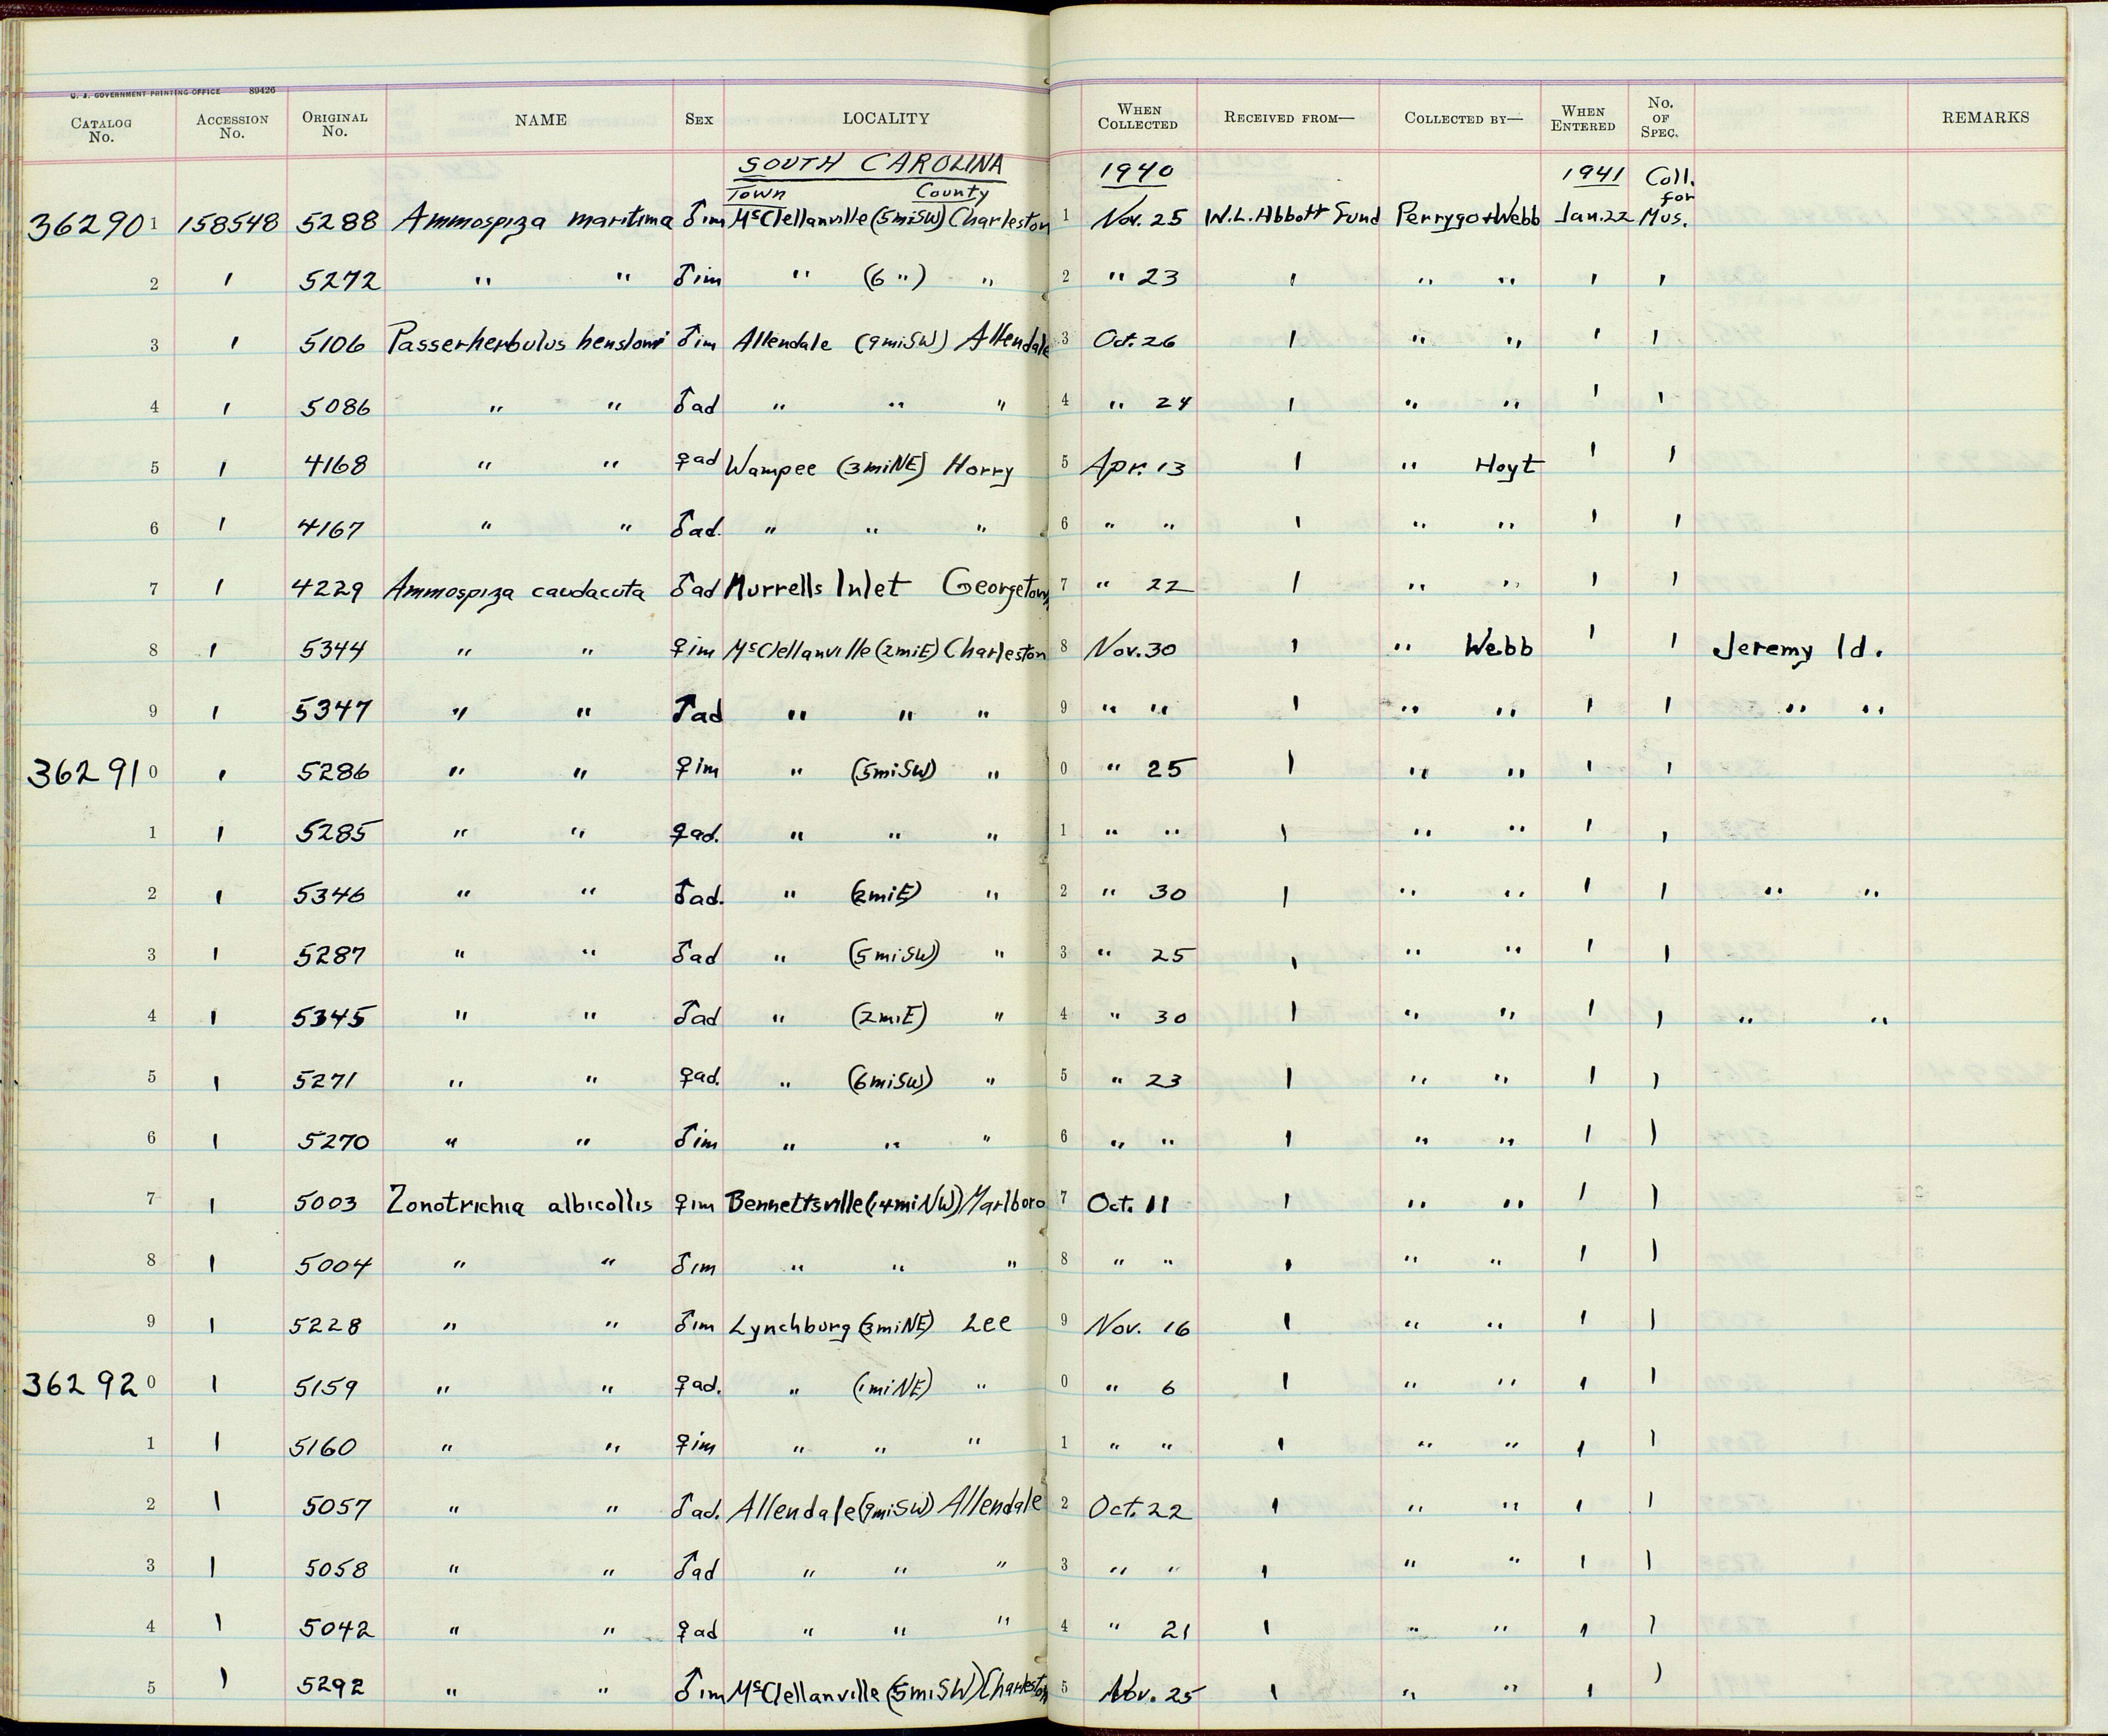 U. S. GOVERNMENT PRINTING OFFICE 89426
CATALOG No. ACCESSION No. ORIGINAL No. NAME SEX LOCALITY WHEN COLLECTED RECEIVED FROM— COLLECTED BY— WHEN ENTERED No. OF SPEC. REMARKS
SOUTH CAROLINA 1940 1941 Coll.
Town County for
362901 158548 5288 Ammospiza maritima ♂im McClellanville (5miSW) Charleston 1 Nov. 25 W.L. Abbott Fund Perrygo+Webb Jan. 22 Mus.
2 " 5272 " " ♂im " (6 ") " 2 " 23 " " " " "
3 " 5106 Passerherbulus henslowi ♂im Allendale (9miSW) Allendale 3 Oct. 26 " " " " "
4 " 5086 " " ♂ad " " " 4 " 24 " " " " "
5 " 4168 " " ♀ad Wampee (3miNE) Horry 5 Apr. 13 " " Hoyt " "
6 " 4167 " " ♂ad. " " " 6 " " " " " " "
7 " 4229 Ammospiza caudacuta ♂ad Murrells Inlet Georgetown 7 " 22 " " " " "
8 " 5344 " " ♀im McClellanville (2miE) Charleston 8 Nov. 30 " " Webb " " Jeremy Id.
9 " 5347 " " ♂ad " " " 9 " " " " " " " " "
362910 " 5286 " " ♀im " (5miSW) " 0 " 25 " " " " "
1 " 5285 " " ♀ad. " " " 1 " " " " " " "
2 " 5346 " " ♂ad. " (2miE) " 2 " 30 " " " " " " "
3 " 5287 " " ♂ad " (5miSW) " 3 " 25 " " " " "
4 " 5345 " " ♂ad " (2miE) " 4 " 30 " " " " " " "
5 " 5271 " " ♀ad. " (6miSW) " 5 " 23 " " " " "
6 " 5270 " " ♂im " " " 6 " " " " " " "
7 " 5003 Zonotrichia albicollis ♀im Bennettsville (14miNW) Marlboro 7 Oct. 11 " " " " "
8 " 5004 " " ♂im " " " 8 " " " " " " "
9 " 5228 " " ♂im Lynchburg (3miNE) Lee 9 Nov. 16 " " " " "
362920 " 5159 " " ♀ad. " (1miNE) " 0 " 6 " " " " "
1 " 5160 " " ♀im " " " 1 " " " " " " "
2 " 5057 " " ♂ad. Allendale (9miSW) Allendale 2 Oct. 22 " " " " "
3 " 5058 " " ♂ad " " " 3 " " " " " " "
4 " 5042 " " ♀ad " " " 4 " 21 " " " " "
5 " 5292 " " ♂im McClellanville (5miSW) Charleston 5 Nov. 25 " " " " "